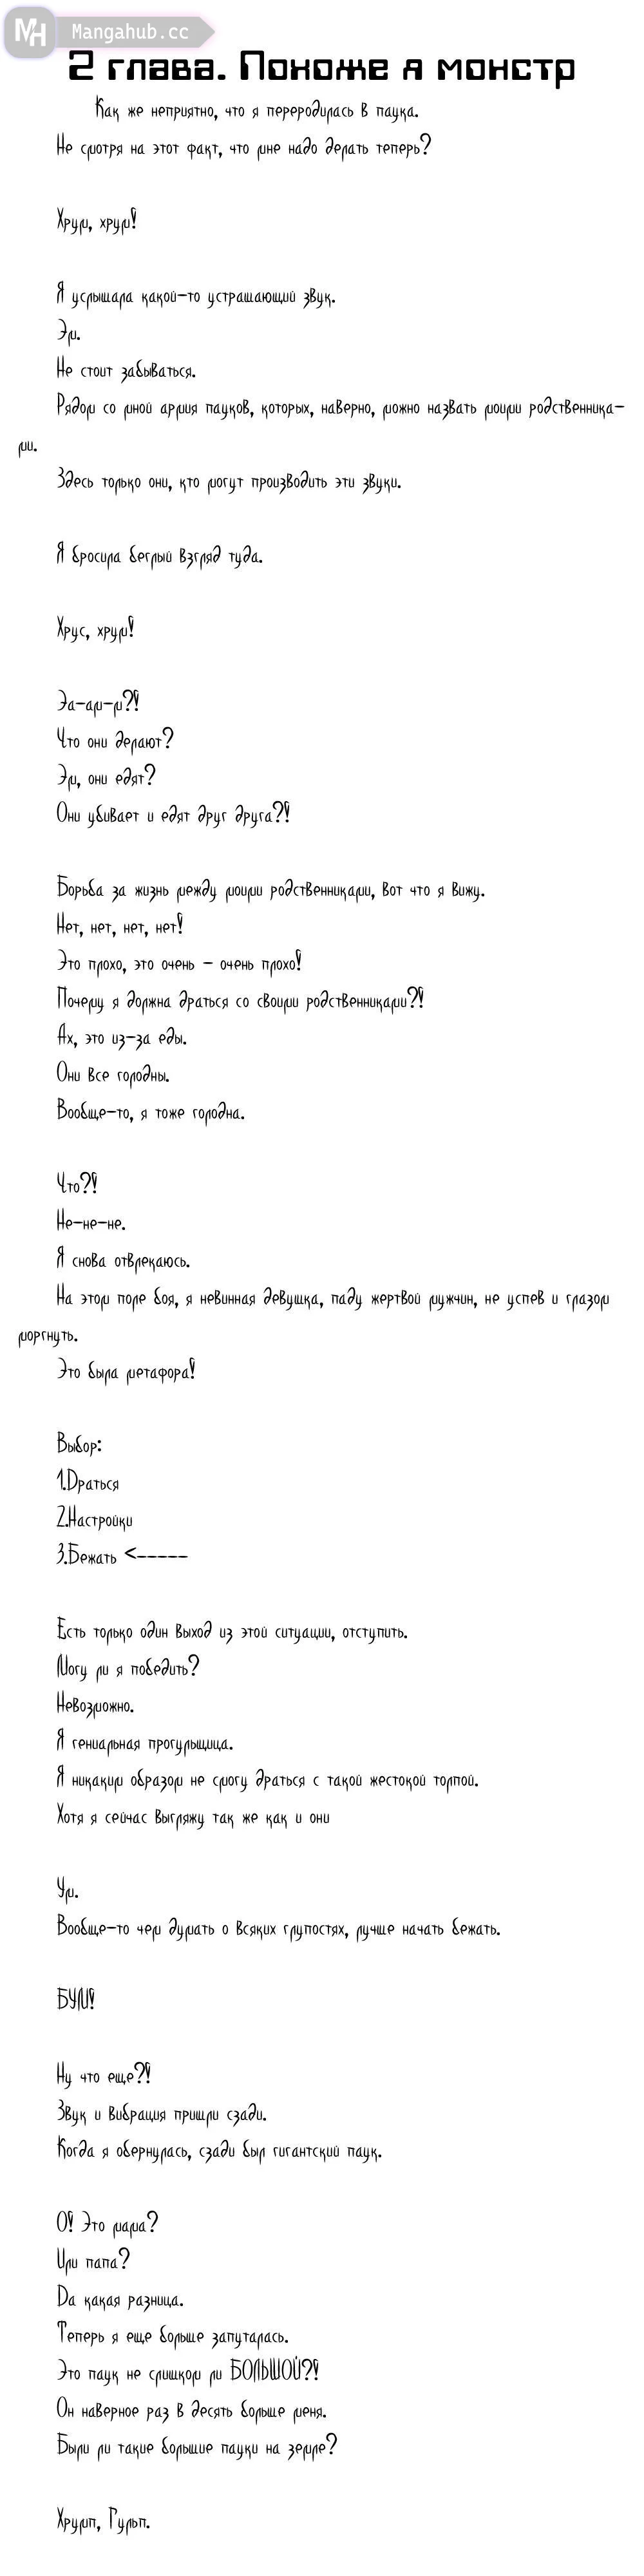 MH Mangahub.cc
2 глава. Похоже я монстр
Как же неприятно, что я переродилась в паука.
Не смотря на этот факт, что мне надо делать теперь?
Хрум, хрум!
Я услышала какой-то устрашающий звук.
Эм.
Не стоит забываться.
Рядом со мной армия пауков, которых, наверно, можно назвать моими родственника-
ми.
Здесь только они, кто могут производить эти звуки.
Я бросила беглый взгляд туда.
Хрус, хрум!
Эа-ам-м?!
Что они делают?
Эм, они едят?
Они убивает и едят друг друга?!
Борьба за жизнь между моими родственниками, вот что я вижу.
Нет, нет, нет, нет!
Это плохо, это очень - очень плохо!
Почему я должна драться со своими родственниками?!
Ах, это из-за еды.
Они все голодны.
Вообще-то, я тоже голодна.
Что?!
Не-не-не.
Я снова отвлекаюсь.
На этом поле боя, я невинная девушка, паду жертвой мужчин, не успев и глазом
моргнуть.
Это была метафора!
Выбор:
1.Драться
2.Настройки
3.Бежать <-----
Есть только один выход из этой ситуации, отступить.
Могу ли я победить?
Невозможно.
Я гениальная прогульщица.
Я никаким образом не смогу драться с такой жестокой толпой.
Хотя я сейчас выгляжу так же как и они
Ум.
Вообще-то чем думать о всяких глупостях, лучше начать бежать.
БУМ!
Ну что еще?!
Звук и вибрация пришли сзади.
Когда я обернулась, сзади был гигантский паук.
О! Это мама?
Или папа?
Да какая разница.
Теперь я еще больше запуталась.
Это паук не слишком ли БОЛЬШОЙ?!
Он наверное раз в десять больше меня.
Были ли такие большие пауки на земле?
Хрумп, Гульп.